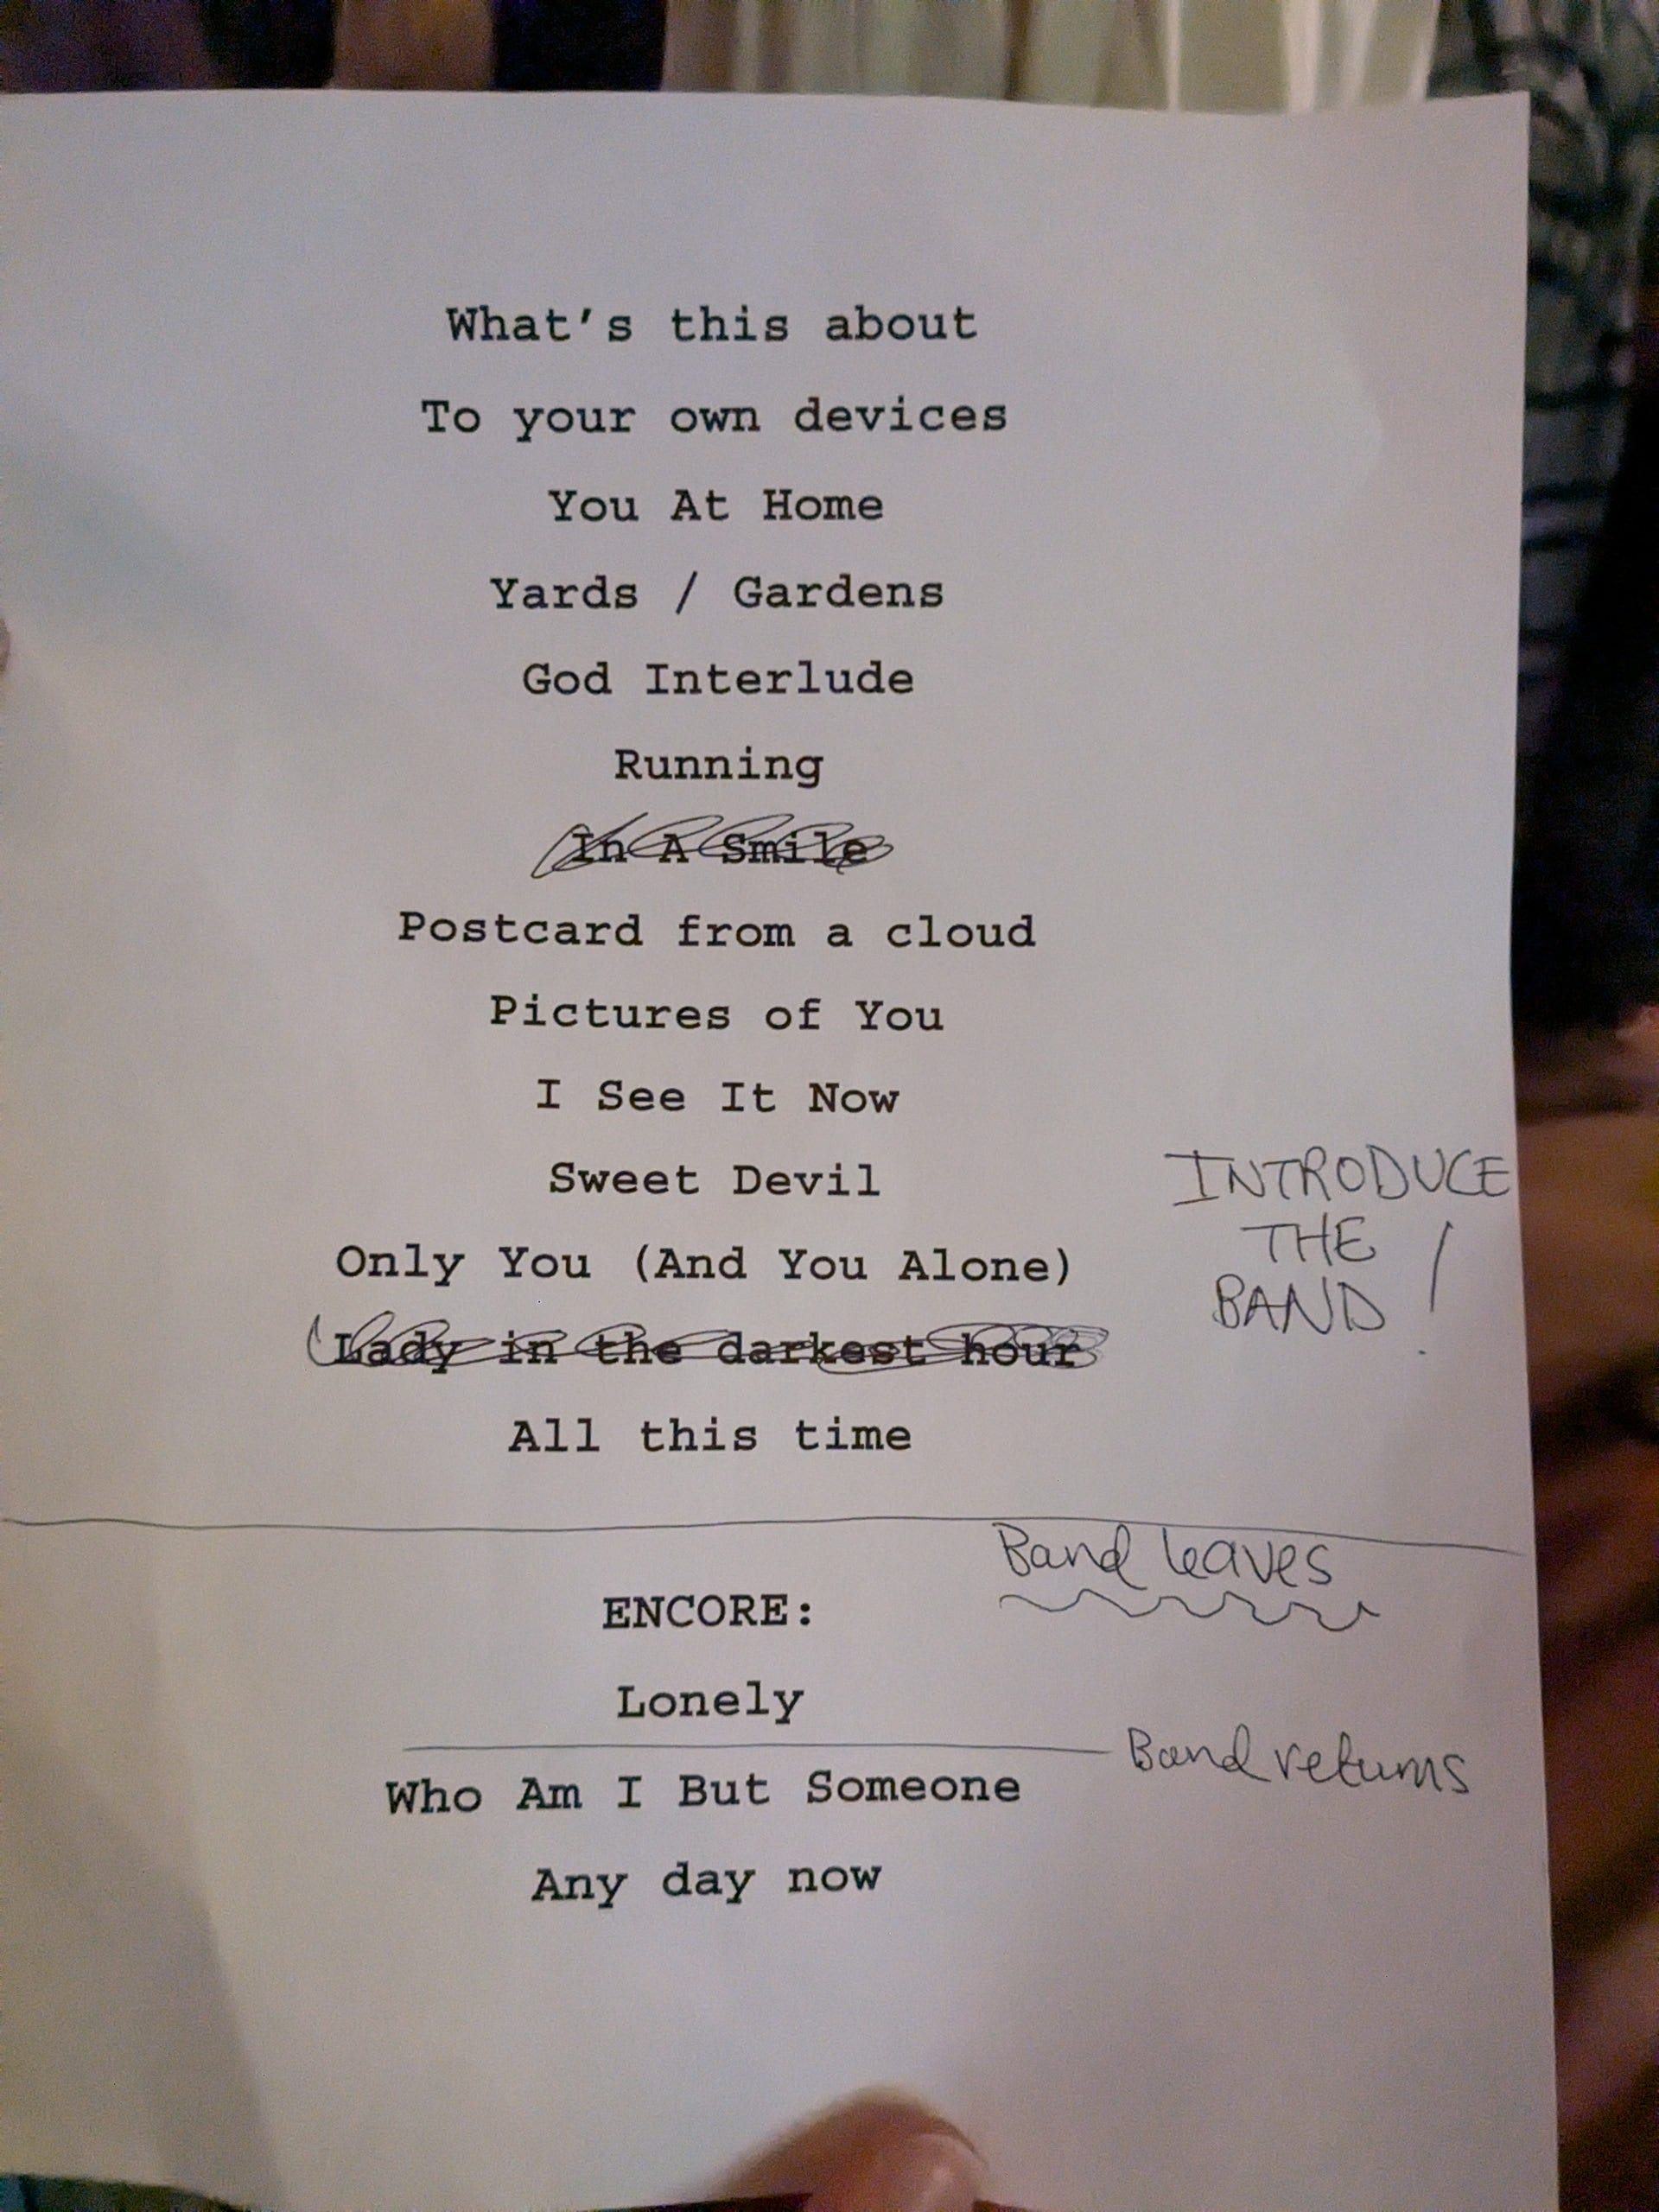 What's this about
To your own devices
You At Home
Yards / Gardens
God Interlude
Running
In A Smile
Postcard from a cloud
Pictures of You
I See It Now
Sweet Devil
INTRODUCE
THE
BAND!
Only You (And You Alone)
Lady in the darkest hour
All this time
Band leaves
ENCORE:
Lonely
Band returns
Who Am I But Someone
Any day now